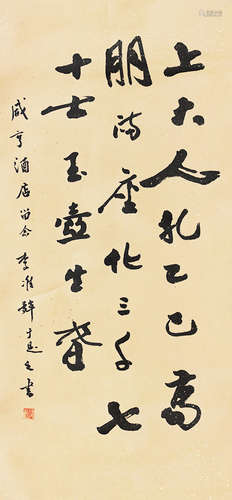 上大人孔乙己高
朋满座化三千七
十士玉壶生春
咸亨酒店留念 李准